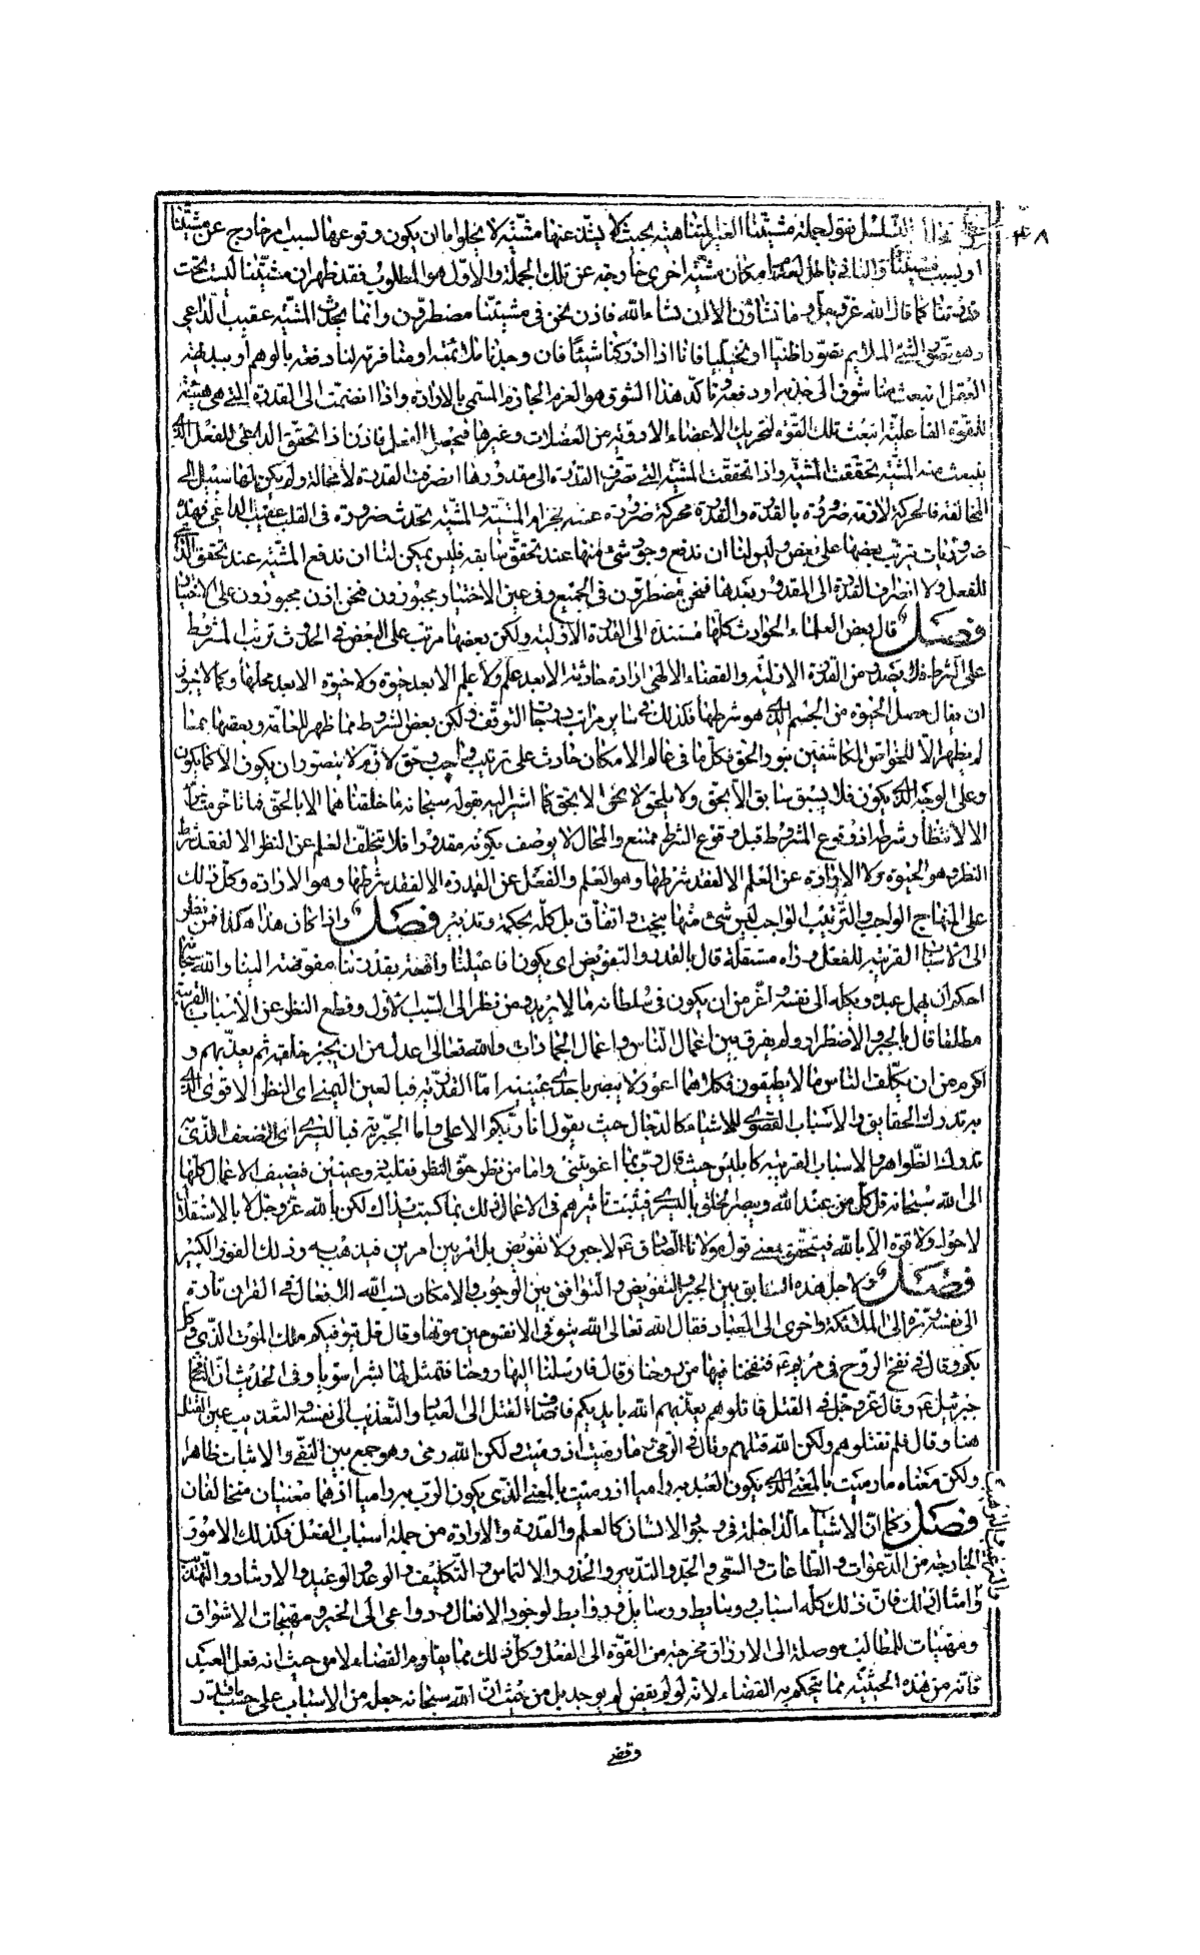 ٣٨
التسلسل نقول جملة مشيئتنا الغير المتناهية بحيث لا يشذ عنها مشيّة لا يخلوا ما ان يكون وقوعها لسبب امر خارج عن مشيّتنا
او بسبب مشيّتنا والثاني باطل لعدم امكان مشيّة اخرى خارجة عن تلك الجملة والاوّل هو المطلوب فقد ظهر ان مشيّتنا ليست تحت
قدرتنا كما قال الله عزّ وجلّ وما تشاؤن الا ان يشاء الله فاذن نحن في مشيتنا مضطرّون وانما يحدث المشيّة عقيب الدّاعي
وهو تصوّر الشئ الملايم تصوّرا ظنيّا او تخيليا فانا اذا ادركنا شيئا فان وجدنا ملائمته او منافرته لنا دفعة بالوهم او ببديهة
العقل انبعث منا شوق الى جذبه او دفعه وتاكّد هذا الشوق هو العزم الجازم المسمّى بالارادة واذا انضمّت الى القدرة التي هي هيئة
للقوّة الفاعلية انبعث تلك القوّة لتحريك الاعضاء الادويّة من العضلات وغيرها فيحصل الفعل فاذن اذا تحقّق الداعي للفعل الذي
ينبعث منه المشيّة تحققت المشيّة واذا تحققت المشيّة التي تصرّف القدرة الى مقدورها انصرفت القدرة لا محالة ولم يكن لها سبيل الى
المخالفة فالحركة لازمة ضرورة بالقدرة والقدرة محركة ضرورة عند انجزام المشيّة والمشيّة تحدث ضرورة في القلب عقيب الداعي فهذه
ضروريات يترتب بعضها على بعض وليس لنا ان ندفع وجود شئ منها عند تحقّق سابقه فليس يمكن لنا ان ندفع المشيّة عند تحقق الداعي
للفعل ولا انصراف القدرة الى المقدور بعدها فنحن مضطرّون في الجميع وفي عين الاختيار مجبورون فنحن اذن مجبورون على الاختيار
فصل قال بعض العلماء الحوادث كلّها مستندة الى القدرة الازلية ولكن بعضها مرتّب على البعض في الحدوث ترتّب المشروط
على الشرط فلا يصدر من القدرة الازليّة والقضاء الالهيّ ارادة حادثة الا بعد علم ولا علم الا بعد حيوة ولا حيوة الا بعد محلها وكما لا يجوز
ان يقال حصل الحيوة من الجسم الذي هو شرطها فكذلك في ساير مراتب درجات التوقف ولكن بعض الشروط مما ظهر للعامة وبعضها مما
لم يظهر الّا للخواصّ المكاشفين بنور الحق فكل ما في عالم الامكان حادث على ترتيب واجب وحق لازم لا يتصوّر ان يكون الا كما يكون
وعلى الوجه الذي يكون فلا يسبق سابق الا بحقّ ولا يلحق لاحق الا بحق كما اشير اليه بقوله سبحانه ما خلقناهما الا بالحقّ فما تاخّر متاخّر
الا لانتظار شرطه اذ وقوع المشروط قبل وقوع الشرط ممتنع والمحال لا يوصف بكونه مقدورا فلا يتخلّف العلم عن النظر الا لفقد شرط
النظر وهو الحيوة ولا الارادة عن العلم الا لفقد شرطها وهو العلم والفعل عن القدرة الا لفقد شرطها وهو الارادة وكلّ ذلك
على المنهاج الواجب والترتيب الواجب ليس شئ منها ببخت واتفاق بل كلّه بحكمة وتدبير فصل واذا كان هذا هكذا فمن نظر
الى الاسباب القريبة للفعل ورأه مستقلة قال بالقدر والتفويض اي يكون افاعيلنا واقعة بقدرتنا مفوضة الينا والله سبحانه
احكم ان يهمل عبده ويكله الى نفسه واعزّ من ان يكون في سلطانه ما لا يريد ومن نظر الى السّبب الاول وقطع النظر عن الاسباب القريبة
مطلقا قال بالجبر والاضطرار ولم يفرق بين اعمال الناس واعمال الجمادات والله تعالى اعدل من ان يجبر خلقه ثم يعذّبهم و
اكرم من ان يكلّف الناس ما لا يطيقون فكلاهما اعور لا يبصر باحدى عينيه امّا القدريّة فبالعين اليمنى اي النظر الاقوى الذي
به تدرك الحقايق والاسباب القصوى للاشياء كالدجّال حيث يقول انا ربّكم الاعلى واما الجبرية فباليسرى اي الضعف الذي به
تدرك الظّواهر والاسباب القريبة كابليس حيث قال ربّ بما اغويتني واما من نظر حقّ النظر فقلبه ذو عينين فيضيف الاعمال كلّها
الى الله سبحانه قل كلّ من عند الله ويبصر الخلق باليسرى فيثبت تاثيرهم في الاعمال ذلك بما كسبت يداك لكن بالله عزّ وجلّ لا بالاستقلال
لا حول ولا قوة الّا بالله فيتحقق معنى قول مولانا الصّادق ع لا جبر ولا تفويض بل امر بين امرين فيذهب به وذلك الفوز الكبير
فصل فلاجل هذه التطابق بين الجبر والتفويض والتوافق بين الوجوب والامكان نسب الله الافعال في القران تارة
الى نفسه ومرّة الى الملائكة واخرى الى العباد فقال الله تعالى الله يتوفّى الانفس حين موتها وقال قل يتوفّيكم ملك الموت الذي وكّل
بكم وقال في نفخ الروح في مريم ع فنفخنا فيها من روحنا وقال فارسلنا اليها روحنا فتمثل لها بشرا سوّيا وفي الحديث انّ النافخ
جبرئيل ع وقال عزّ وجلّ في القتل قاتلوهم يعذّبهم الله بايديكم فاضاف القتل الى العباد والتعذيب الى نفسه والتعذيب عين القتل
هنا وقال فلم تقتلوهم ولكن الله قتلهم وقال في الرمي ما رميت اذ رميت ولكن الله رمى وهو جمع بين النفي والاثبات ظاهرا
ولكن معناه ما رميت بالمعنى الذي يكون العبد به راميا اذ رميت بالمعنى الذي يكون الربّ به راميا اذ هما معنيان مختلفان
فصل وكما ان الاشياء الداخلة في وجود الانسان كالعلم والقدرة والارادة من جملة اسباب الفعل فكذلك الامور
الخارجة من الدّعوات والطّاعات والسعي والجدّ والتدبير والحذر والالتماس والتكليف والوعد والوعيد والارشاد والتهذيب
وامثال ذلك فانّ ذلك كلّه اسباب ووسايط وروابط لوجود الافعال ودواعي الى الخير ومهيّجات الاشواق
ومهيئات للمطالب موصلة الى الارزاق مخرجة من القوّة الى الفعل وكلّ ذلك مما يقاوم القضاء لا من حيث انه فعل العبد
فانّه من هذه الحيثيّة مما يتحكّم به القضاء لانه لو لم يقض لم يوجد بل من حيث انّ الله سبحانه جعله من الاسباب على حسب ما قدّر
وقضى